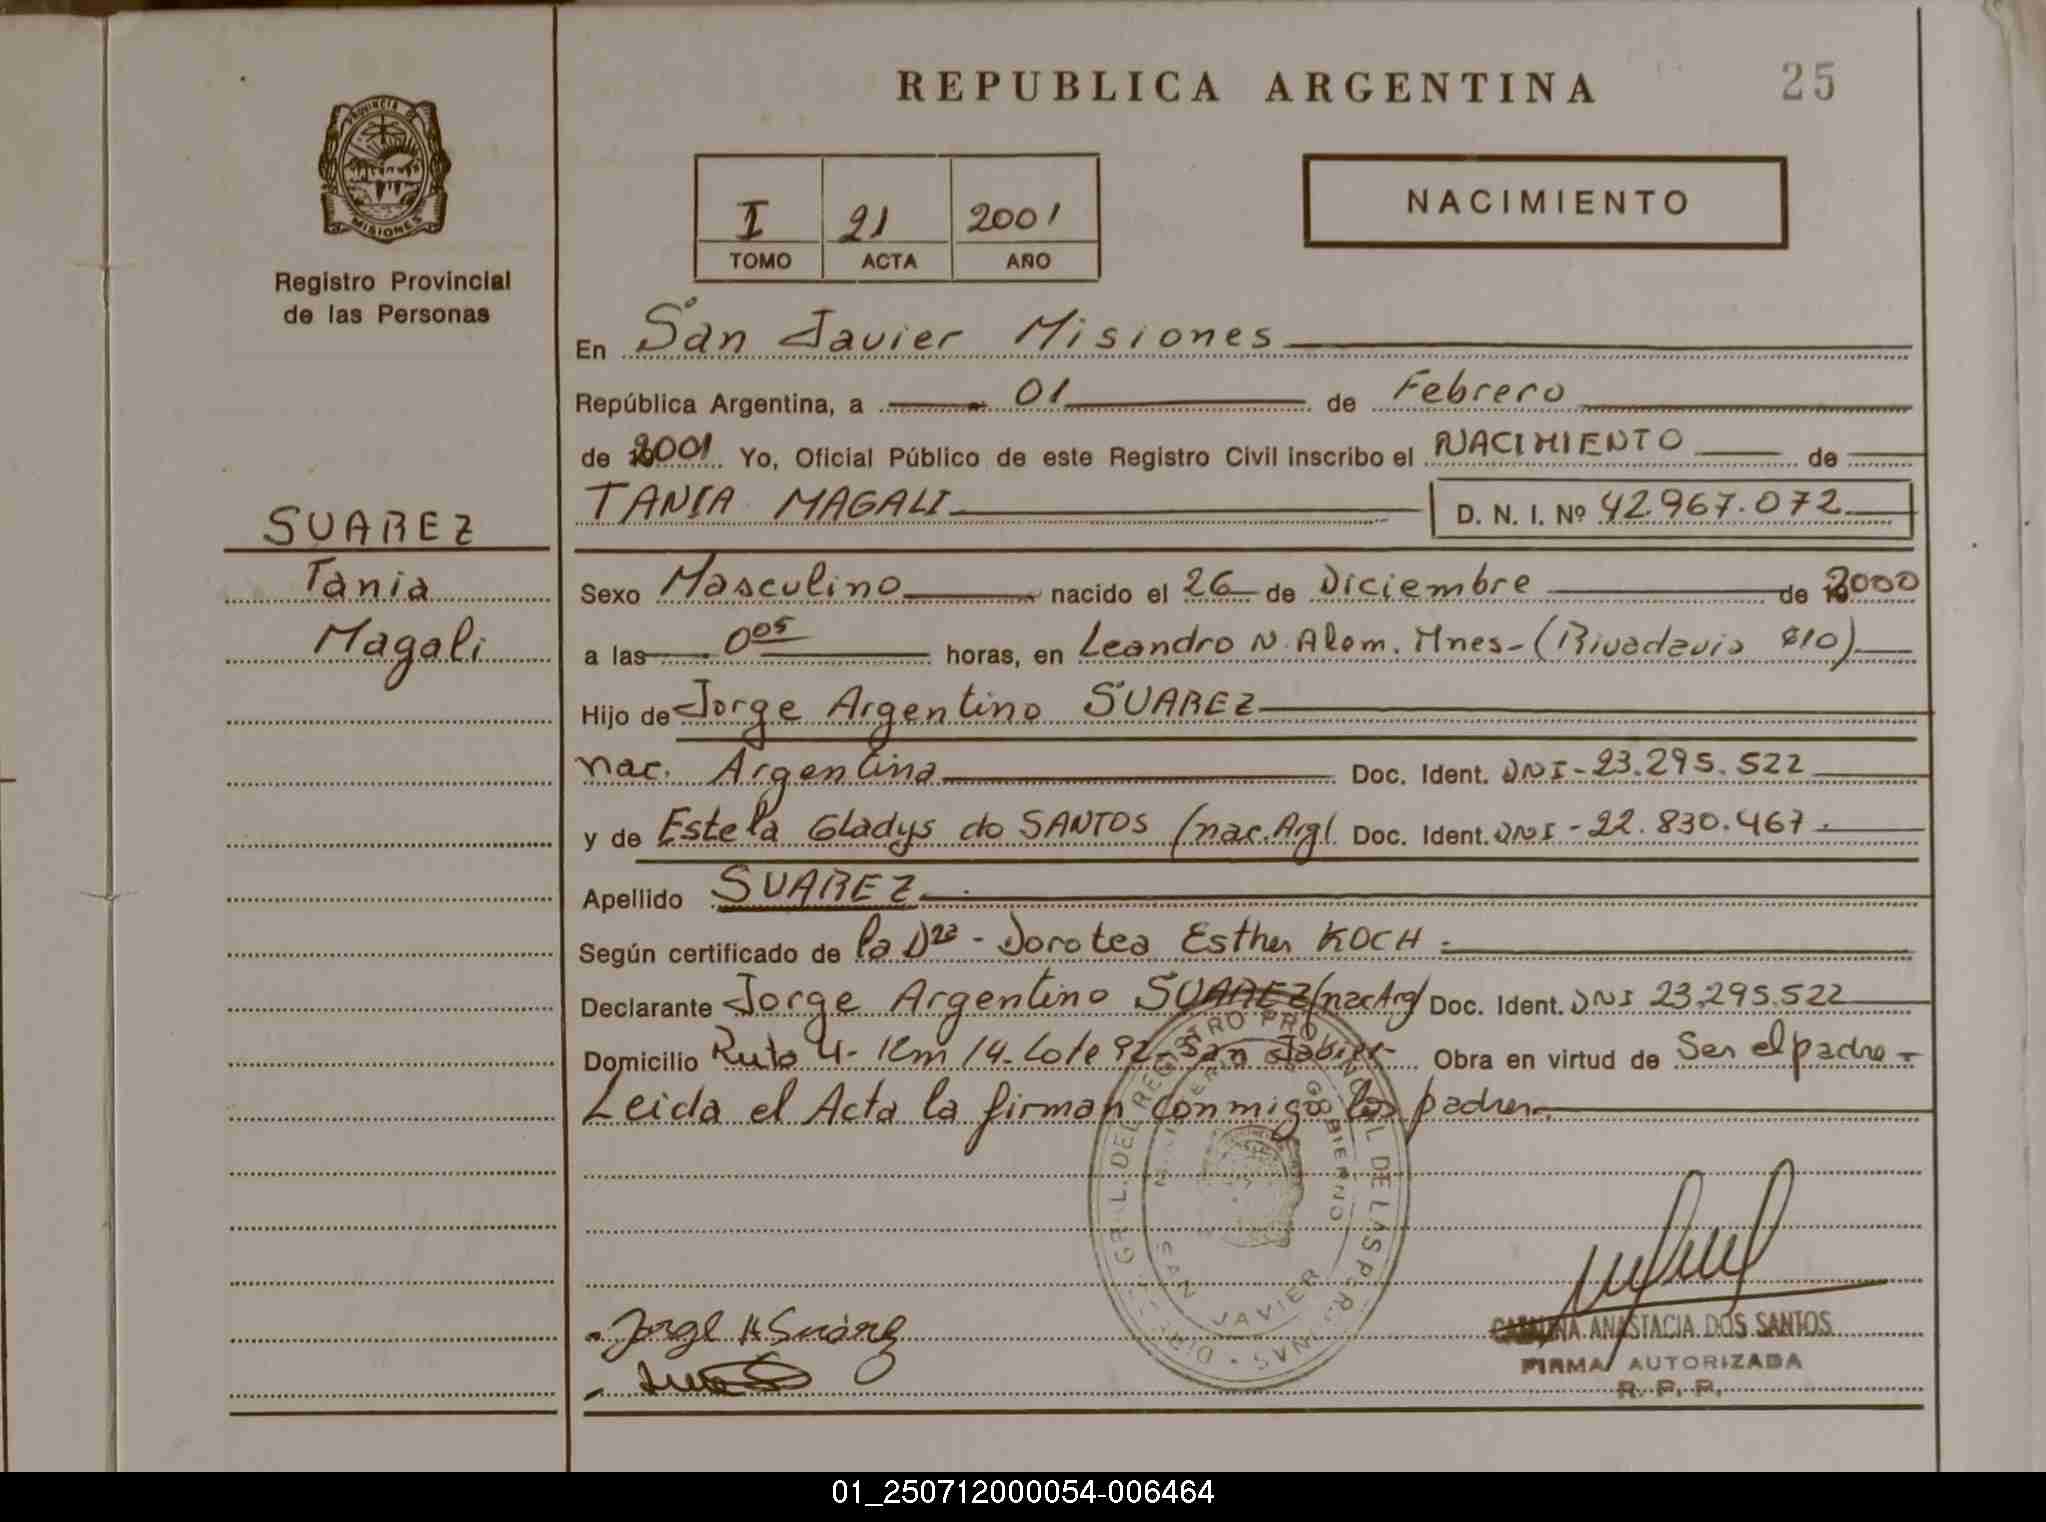 REPUBLICA ARGENTINA
25
PROVINCIA DE
MISIONES
Registro Provincial
de las Personas
I 21 2001
TOMO ACTA AÑO
NACIMIENTO
SUAREZ
Tania
Magali
En San Javier Misiones
República Argentina, a 01 de Febrero
de 2001 Yo, Oficial Público de este Registro Civil inscribo el NACIMIENTO de
TANIA MAGALI D. N. I. Nº 42.967.072
Sexo Masculino nacido el 26 de Diciembre de 2000
a las 0 05 horas, en Leandro N. Alem. Mnes-(Rivadavia 810)
Hijo de Jorge Argentino SUAREZ
nac. Argentina Doc. Ident. DNI-23.295.522
y de Estela Gladys do SANTOS (nac.Arg( Doc. Ident. DNI-22.830.467.
Apellido SUAREZ
Según certificado de la Dra - Dorotea Esther KOCH
Declarante Jorge Argentino SUAREZ(nacArg) Doc. Ident. DNI 23.295.522
Domicilio Ruta 4- Km 14- Lote 92- San Jabier- Obra en virtud de Ser el padre-
Leida el Acta la firman conmigo los padres.
DIREC. GRAL. DEL REGISTRO PROVINCIAL DE LAS PERSONAS
MINISTERIO DE GOBIERNO
SAN JAVIER
Jorge A Suárez
CATALINA ANASTACIA DOS SANTOS
FIRMA AUTORIZADA
R. P. P.
01_250712000054-006464